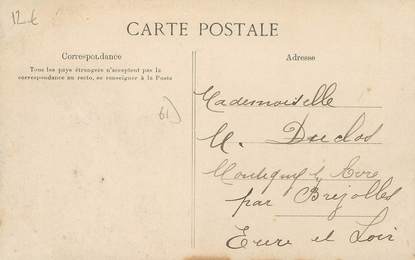 12 €
CARTE POSTALE
Correspondance
Adresse
Tous les pays étrangers n'acceptent pas la
correspondance au recto, se renseigner à la Poste
61)
Mademoiselle
M. Duclos
Montigny s/ Avre
par Brezolles
Eure et Loir